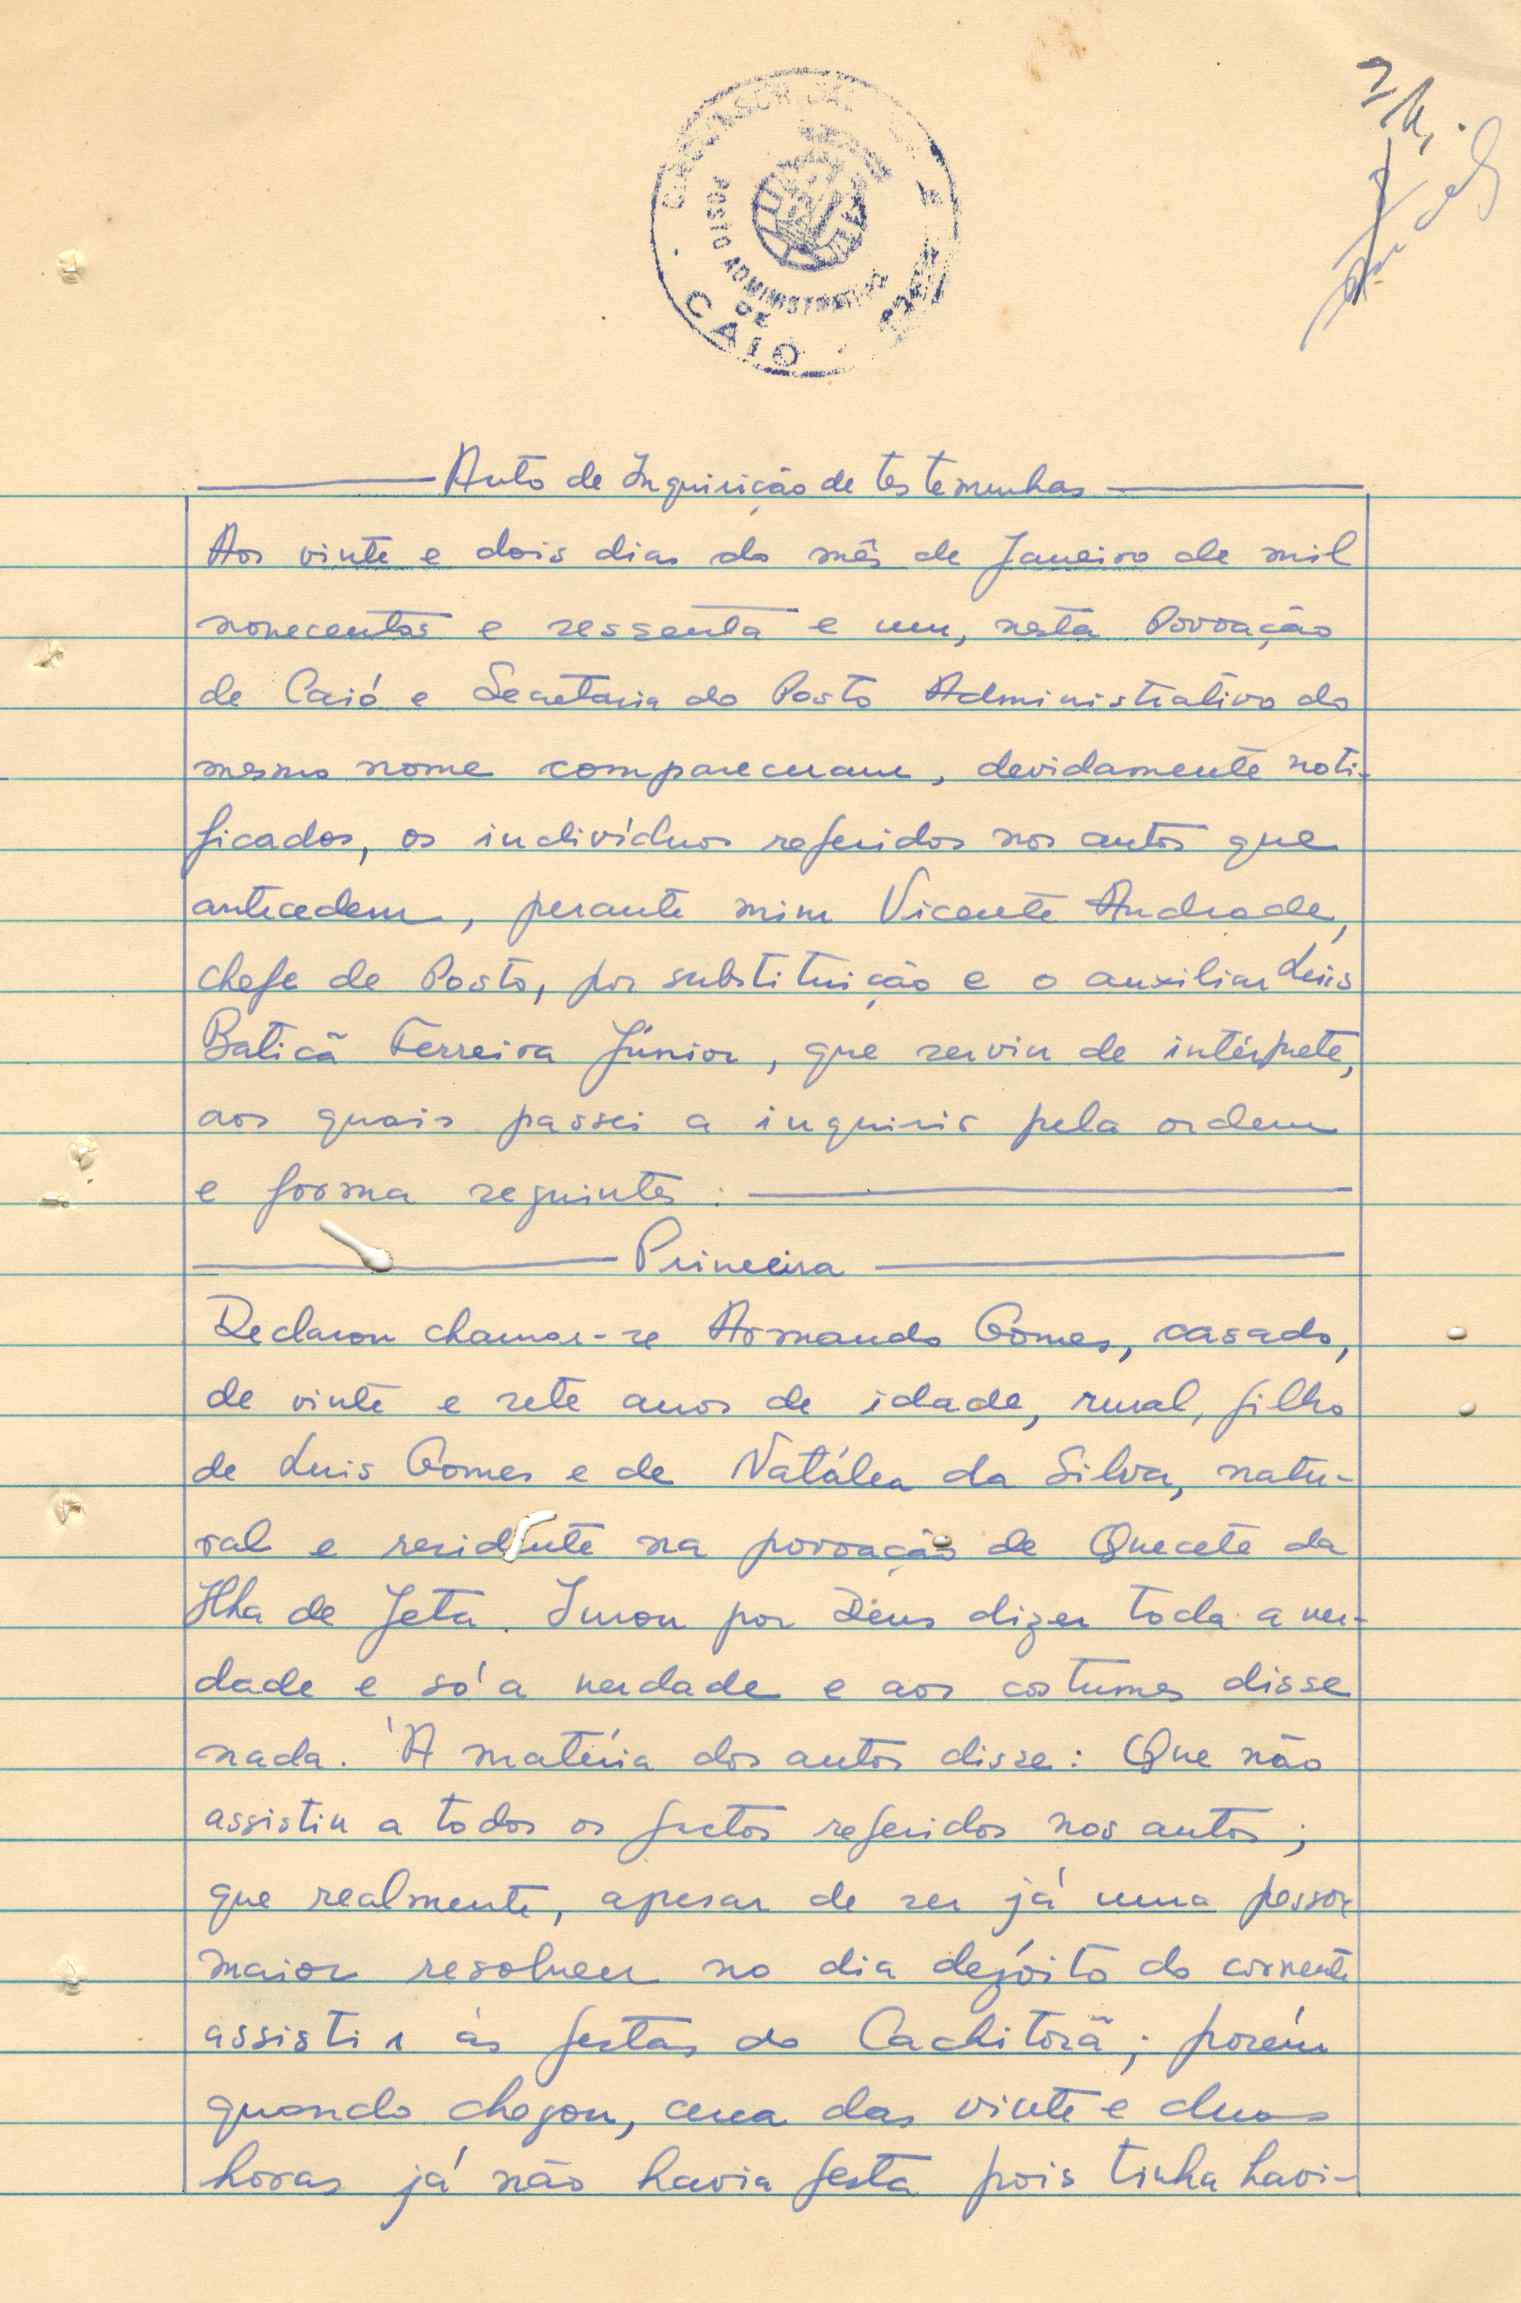 POSTO ADMINISTRATIVO
DE
CAIO
Auto de Inquirição de testemunhas
Aos vinte e dois dias do mês de Janeiro de mil
novecentos e sessenta e um, nesta Povoação
de Caió e Secretaria do Posto Administrativo do
mesmo nome compareceram, devidamente noti-
ficados, os indivíduos referidos nos autos que
antecedem, perante mim Vicente Andrade,
chefe de Posto, por substituição e o auxiliar Luis
Baticã Ferreira Júnior, que serviu de intérprete,
aos quais passei a inquirir pela ordem
e forma seguintes:
Primeira
Declarou chamar-se Armando Gomes, casado,
de vinte e sete anos de idade, rural, filho
de Luis Gomes e de Natálea da Silva, natu-
ral e residente na povoação de Quecete da
Ilha de Jeta. Jurou por Deus dizer toda a ver-
dade e só a verdade e aos costumes disse
nada. À matéria dos autos disse: Que não
assistiu a todos os factos referidos nos autos;
que realmente, apesar de ser já uma pessoa
maior resolveu no dia dezóito do corrente
assistir às festas do Cachitorã; porém
quando chegou, cerca das vinte e duas
horas já não havia festa pois tinha havi-